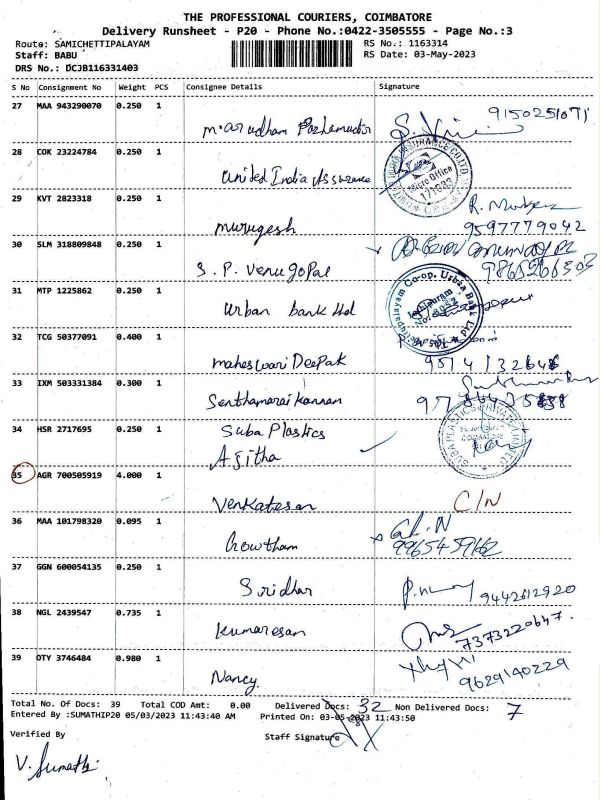 THE PROFESSIONAL COURIERS, COIMBATORE
Delivery Runsheet - P20 - Phone No.:0422-3505555 - Page No.:3
Route: SAMICHETTIPALAYAM RS No.: 1163314
Staff: BABU RS Date: 03-May-2023
DRS No.: DCJB116331403
S No Consignment No Weight PCS Consignee Details Signature
27 MAA 943290070 0.250 1 9150251071
28 COK 23224784 0.250 1 United India Assurance
Micro Office
171083
29 KVT 2823318 0.250 1 Murugesh
9597779042
30 SLM 318809848 0.250 1 S.P. Venugopal
31 MTP 1225862 0.250 1 Urban bank ltd
Co-op. Urban Bank Ltd
32 TCG 50377091 0.400 1 Maheswari Deepak
33 IXM 503331384 0.300 1 Senthamarai Kannan
34 HSR 2717695 0.250 1 Suba Plastics
Ajitha
SUBA PLASTICS PRIVATE LIMITED
35 AGR 700505919 4.000 1 Venkatesan C/N
36 MAA 101798320 0.095 1 Gowtham
37 GGN 600054135 0.250 1 Sridhar 9442612920
38 NGL 2439547 0.735 1 Kumaresan
7373220647.
39 OTY 3746484 0.980 1 Nancy.
9629140229
Total No. Of Docs: 39 Total COD Amt: 0.00 Delivered Docs: 32 Non Delivered Docs: 7
Entered By :SUMATHIP20 05/03/2023 11:43:40 AM Printed On: 03-05-2023 11:43:50
Verified By Staff Signature
V. Sumathi